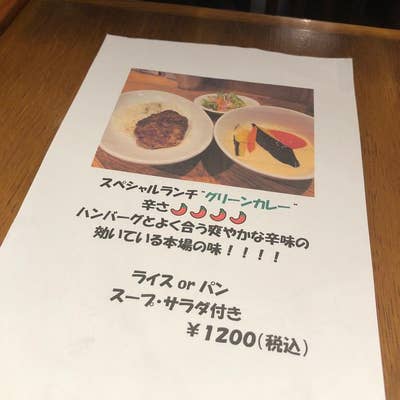 スペシャルランチ"グリーンカレー"
辛さ🌶🌶🌶🌶
ハンバーグとよく合う爽やかな辛味の
効いている本場の味！！！！
ライス or パン
スープ・サラダ付き
￥1200(税込)